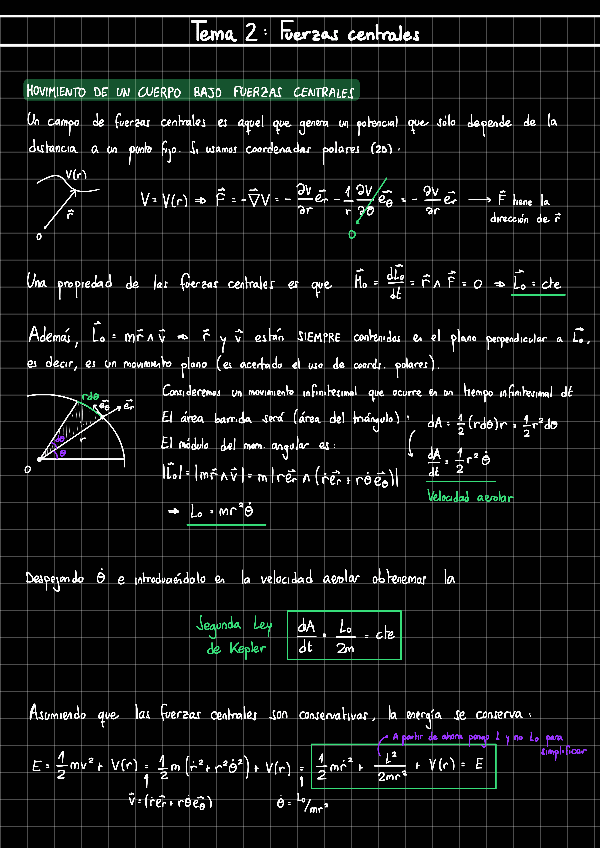 Tema 2: Fuerzas centrales
MOVIMIENTO DE UN CUERPO BAJO FUERZAS CENTRALES
Un campo de fuerzas centrales es aquel que genera un potencial que sólo depende de la
distancia a un punto fijo. Si usamos coordenadas polares (2D):
V(r)
r⃗
O
V = V(r) ⇒ F⃗ = -∇⃗V = - ∂V/∂r e⃗r - 1/r ∂V/∂θ e⃗θ = - ∂V/∂r e⃗r → F⃗ tiene la
dirección de r⃗
0
Una propiedad de las fuerzas centrales es que M⃗o = dL⃗o/dt = r⃗ ∧ F⃗ = 0 ⇒ L⃗o = cte
Además, L⃗o = mr⃗ ∧ v⃗ ⇒ r⃗ y v⃗ están SIEMPRE contenidos en el plano perpendicular a L⃗o,
es decir, es un movimiento plano (es acertado el uso de coords. polares).
Consideremos un movimiento infinitesimal que ocurre en un tiempo infinitesimal dt
rdθ
e⃗θ
e⃗r
dθ
r
θ
O
El área barrida será (área del triángulo): dA = 1/2 (rdθ)r = 1/2 r²dθ
El módulo del mom. angular es: dA/dt = 1/2 r²θ̇
|L⃗o| = |mr⃗ ∧ v⃗| = m|re⃗r ∧ (ṙe⃗r + rθ̇e⃗θ)|
Velocidad aerolar
⇒ Lo = mr²θ̇
Despejando θ̇ e introduciéndolo en la velocidad aerolar obtenemos la
Segunda Ley
de Kepler
dA/dt = Lo/2m = cte
Asumiendo que las fuerzas centrales son conservativas, la energía se conserva:
A partir de ahora pongo L y no Lo para
simplificar
E = 1/2 mv² + V(r) = 1/2 m (ṙ² + r²θ̇²) + V(r) = 1/2 mṙ² + L²/2mr² + V(r) = E
v⃗ = (ṙe⃗r + rθ̇e⃗θ)
θ̇ = Lo/mr²